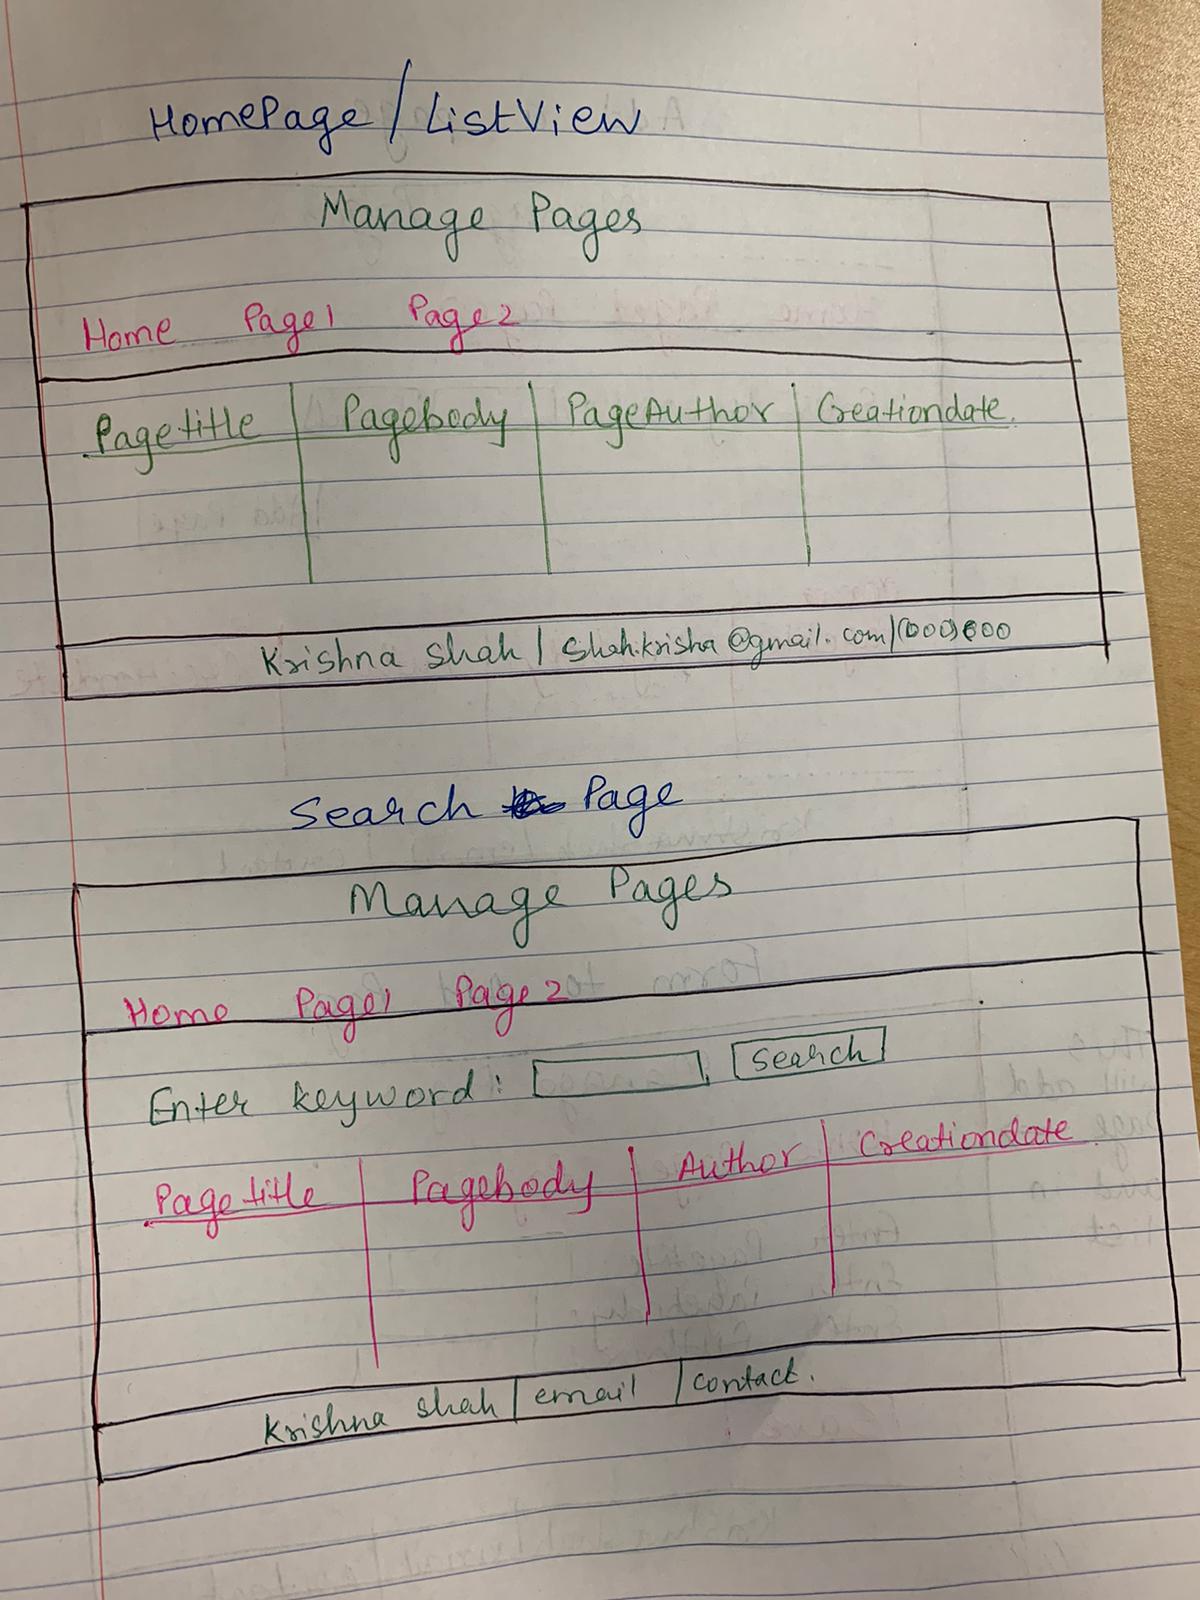 HomePage/ListView
Manage Pages
Home Page1 Page2
Pagetitle Pagebody PageAuthor Creationdate.
Krishna Shah | Shah.krisha@gmail.com/
Search Page
Manage Pages
Home Page1 Page2
Enter keyword: Search
Pagetitle Pagebody Author Creationdate
Krishna Shah | email / contact.